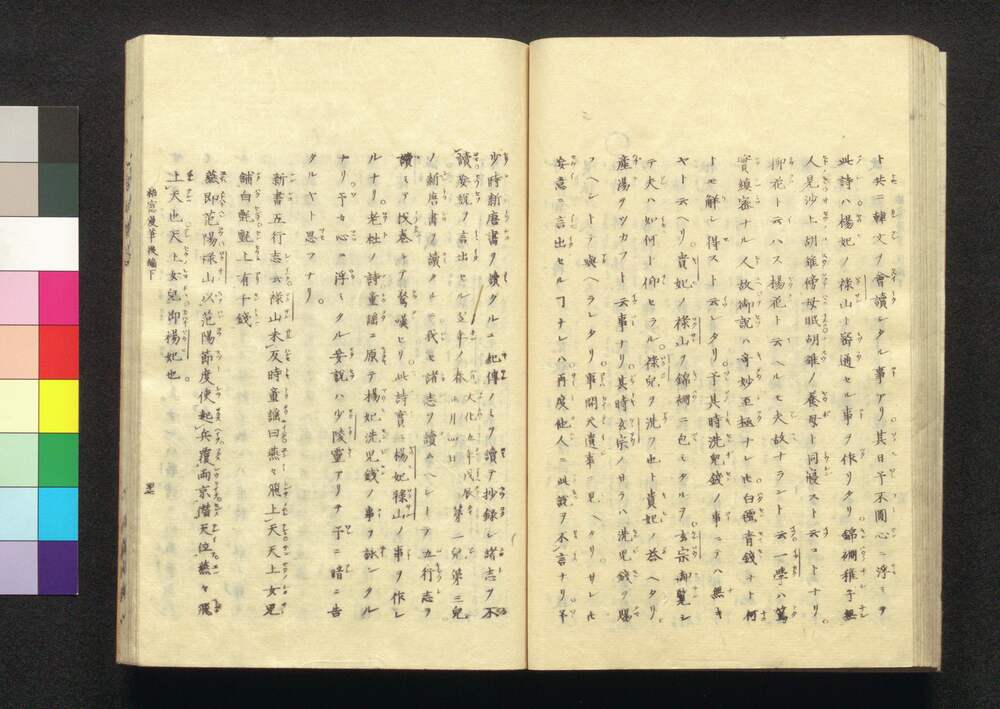 ト共ニ韓文ノ會讀シタル事アリ其日予不圖心ニ浮ミタ
此詩ハ楊妃ノ祿山ト密通セル事ヲ作リタリ錦硼稚子無
人見沙上鳬雛傍母眠胡雛ノ養母ト同寢スト云コトナリ
柳花ト云ハス楊花ト云ヘルモ夫故ナラント云一學ハ篤
實縝密ナル人故御説ハ奇妙至極ナレ𪜈白氊青錢ハ何
トモ解シ得スト云レタリ予其時洗兒錢ノ事ニテハ無キ
ヤト云ヘリ貴妃ノ祿山ヲ錦繃ニ包ミタルヲ玄宗御覽シ
テ夫ハ如何ト仰セラル祿兒ヲ洗フ也ト貴妃ノ答ヘタリ
産湯ヲツカフト云事ナリ其時玄宗ノサラハ洗兒錢ヲ賜
フヘシトテ與ヘラレタリ此事開天遺事ニ見ヘタリサレ𪜈
妄意ニ言出セルヿナレハ再度他人ニ此説ヲ不言ナリキ
少時新唐書ヲ讀タルニ紀傳ノミヲ讀テ抄錄シ諸志ヲ不
讀妄説ヲ言出セル翌年ノ春 文化五年戊辰 第一兒第三兒
ノ新唐書ヲ讀タルニ我モ諸志ヲ讀ムヘシトテ五行志ヲ
讀ミテ伐卷シテ驚嘆セリ此詩實ニ楊妃祿山ノ事ヲ作レ
ルナリ老杜ノ詩童謡ニ原テ楊妃洗兒錢ノ事ヲ詠シタル
ナリ予カ心ニ浮ミタル妄説ハ少陵靈アリテ予ニ暗ニ告
タルヤト思フナリ
新書五行志云祿山未反時童謡曰燕々飛上天天上女兒
鋪白氊氊上有千錢
燕即范陽祿山以范陽節度使起兵覆兩京僭天位燕々飛
上天也天上女兒即楊妃也
柏窓漫筆後編下